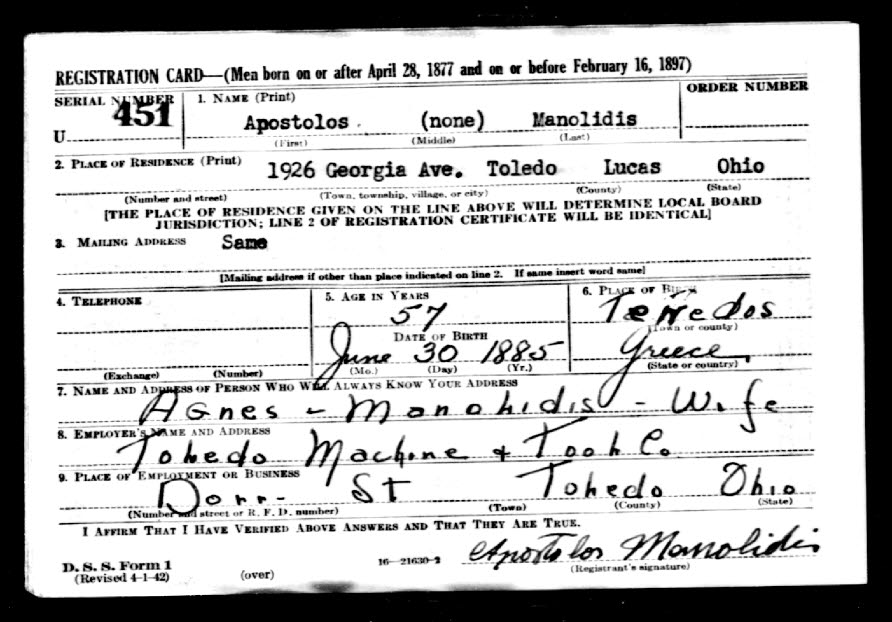 REGISTRATION CARD—(Men born on or after April 28, 1877 and on or before February 16, 1897)
SERIAL NUMBER 1. NAME (Print) ORDER NUMBER
U 451 Apostolos (none) Manolidis
(First) (Middle) (Last)
2. PLACE OF RESIDENCE (Print)
1926 Georgia Ave. Toledo Lucas Ohio
(Number and street) (Town, township, village, or city) (County) (State)
[THE PLACE OF RESIDENCE GIVEN ON THE LINE ABOVE WILL DETERMINE LOCAL BOARD
JURISDICTION; LINE 2 OF REGISTRATION CERTIFICATE WILL BE IDENTICAL]
3. MAILING ADDRESS Same
[Mailing address if other than place indicated on line 2. If same insert word same]
4. TELEPHONE 5. AGE IN YEARS 6. PLACE OF BIRTH
57 Tenedos
DATE OF BIRTH (Town or county)
June 30 1885 Greece
(Exchange) (Number) (Mo.) (Day) (Yr.) (State or country)
7. NAME AND ADDRESS OF PERSON WHO WILL ALWAYS KNOW YOUR ADDRESS
Agnes - Manohidis - Wife
8. EMPLOYER'S NAME AND ADDRESS
Tohedo Machine + Tooh Co.
9. PLACE OF EMPLOYMENT OR BUSINESS
Dorr- St Tohedo Ohio
(Number and street or R. F. D. number) (Town) (County) (State)
I AFFIRM THAT I HAVE VERIFIED ABOVE ANSWERS AND THAT THEY ARE TRUE.
D. S. S. Form 1
(Revised 4-1-42) (over) 16—21630-2 Apostolos Manolidis
(Registrant's signature)